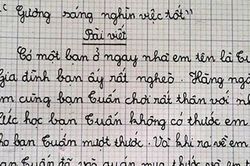 "Gương sáng nghìn việc tốt"
Bài viết
Có một bạn ở ngay nhà em tên là Tu
gia đình bạn ấy rất nghèo. Hàng ngà
em cùng bạn Tuấn chơi rất thân với n
lúc học bạn Tuấn không có thước em
cho bạn Tuấn mượt thước. Vài khi ra về em